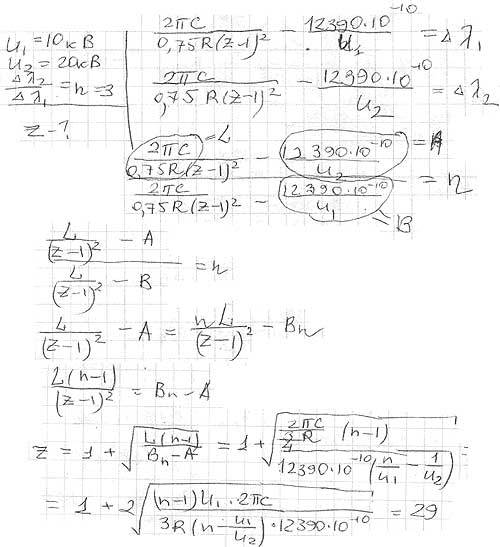 U₁ = 10кВ
U₂ = 20кВ
Δλ₂/Δλ₁ = n = 3
Z - ?
2πC/(0,75R(z-1)²) - 12390·10⁻¹⁰/U₁ = Δλ₁
2πC/(0,75R(z-1)²) - 12390·10⁻¹⁰/U₂ = Δλ₂
(2πC/(0,75R(z-1)²) - 12390·10⁻¹⁰/U₂)/(2πC/(0,75R(z-1)²) - 12390·10⁻¹⁰/U₁) = n
= L
= A
= B
(L/(z-1)² - A)/(L/(z-1)² - B) = n
L/(z-1)² - A = nL/(z-1)² - Bn
L(n-1)/(z-1)² = Bn - A
z = 1 + √(L(n-1)/(Bn - A)) = 1 + √((2πC/(3/4 R) (n-1))/(12390·10⁻¹⁰(n/U₁ - 1/U₂))) =
= 1 + 2√((n-1)U₁·2πC/(3R(n - U₁/U₂)·12390·10⁻¹⁰)) = 29